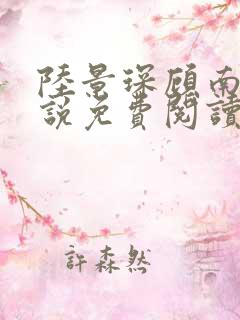 陸景琛顧南
說免費閱讀
許森然